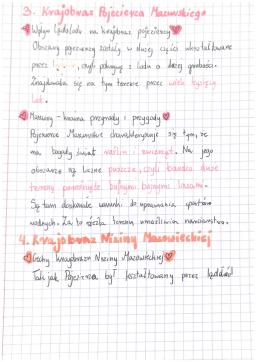 3. Krajobraz Pojezierza Mazurskiego
Wpływ lądolodu na krajobraz pojezierzy
Obszary pojezierzy zostały w dużej części ukształtowane
przez l....., czyli pokrywę z lodu o dużej grubości.
Znajdowała się na tym terenie przez wiele tysięcy
lat.
Mazury - kraina przyrody i przygody
Pojezierze Mazurskie charakteryzuje się tym, że
ma bogaty świat roślin i zwierząt. Na jego
obszarze są liczne puszcze, czyli bardzo duże
tereny porośnięte bujnymi lasami.
Są tam doskonałe warunki do uprawiania sportów
wodnych. Za to rzeźba terenu umożliwia narciarstwo.
4. Krajobraz Niziny Mazowieckiej
Cechy krajobrazu Niziny Mazowieckiej
Tak jak Pojezierza był kształtowany przez lądolód